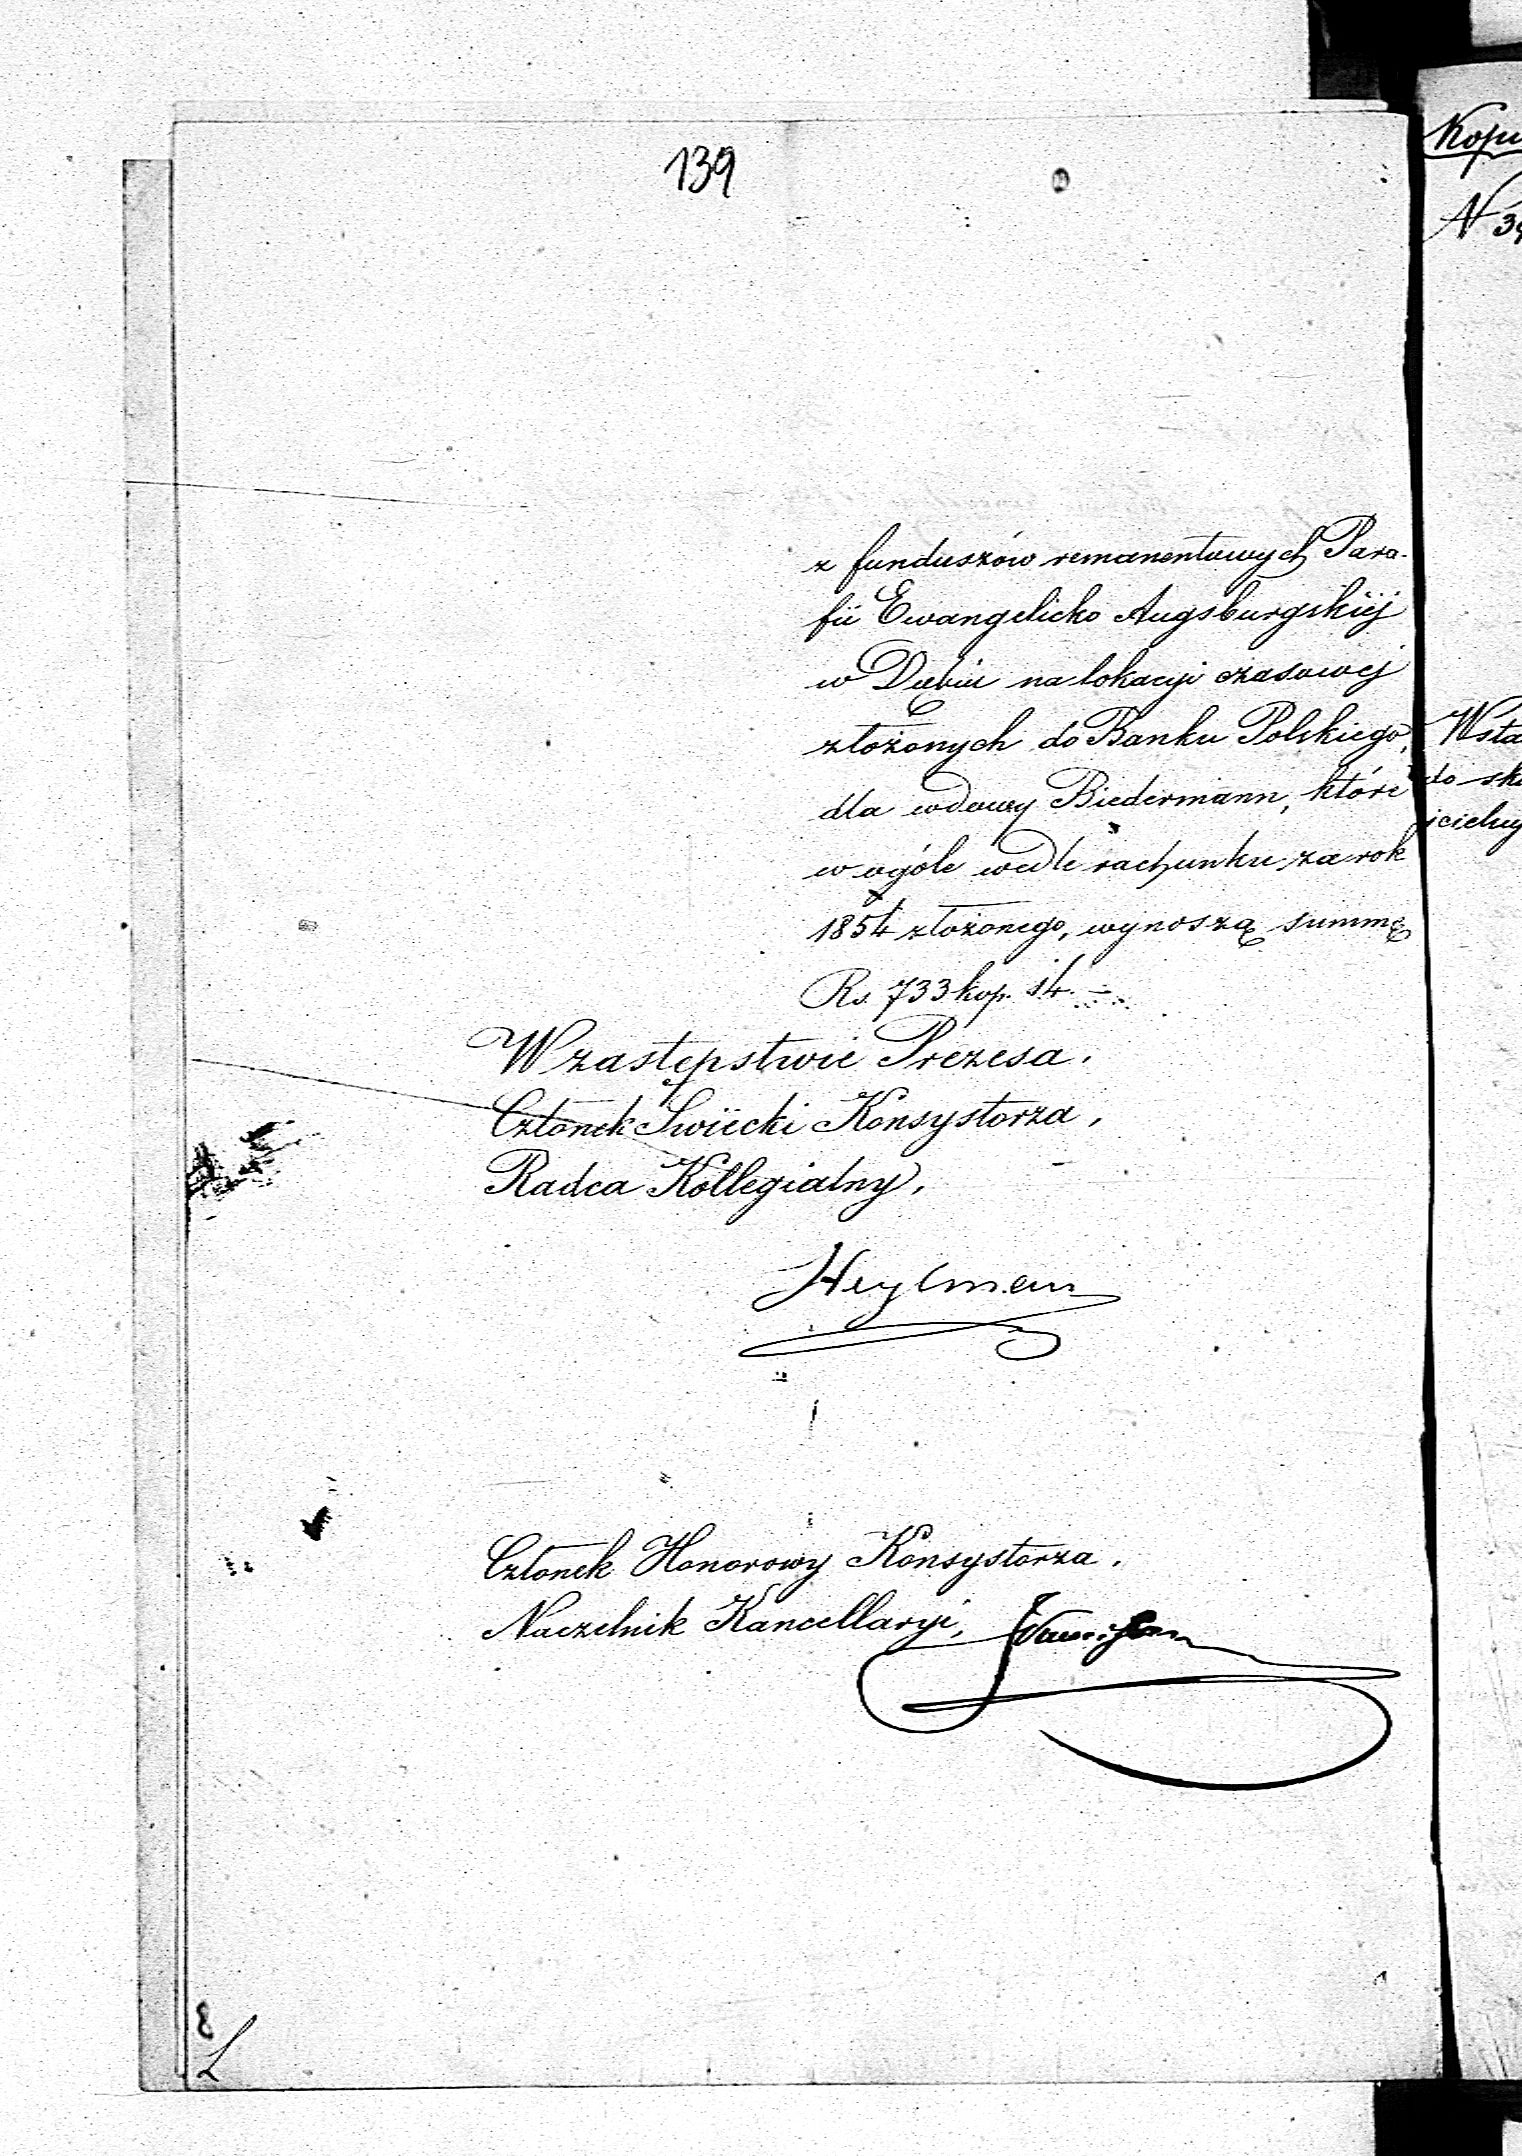 139
z funduszów remanentowych Para-
fii Ewangelicko Augsburgskiéj
w Dąbiu na lokacyi czasowej
złożonych do Banku Polskiego,
dla wdowy Biedermann, które
w ogóle wedle rachunku za rok
1854 złożonego, wynoszą summę
Rs. 733 kop. 14. –
W zastępstwie Prezesa.
Członek Swiecki Konsystorza,
Radca Kollegialny,
Heylman
Członek Honorowy Konsystorza.
Naczelnik Kancellaryi,
Kopi
N 34
Wsta
do sk